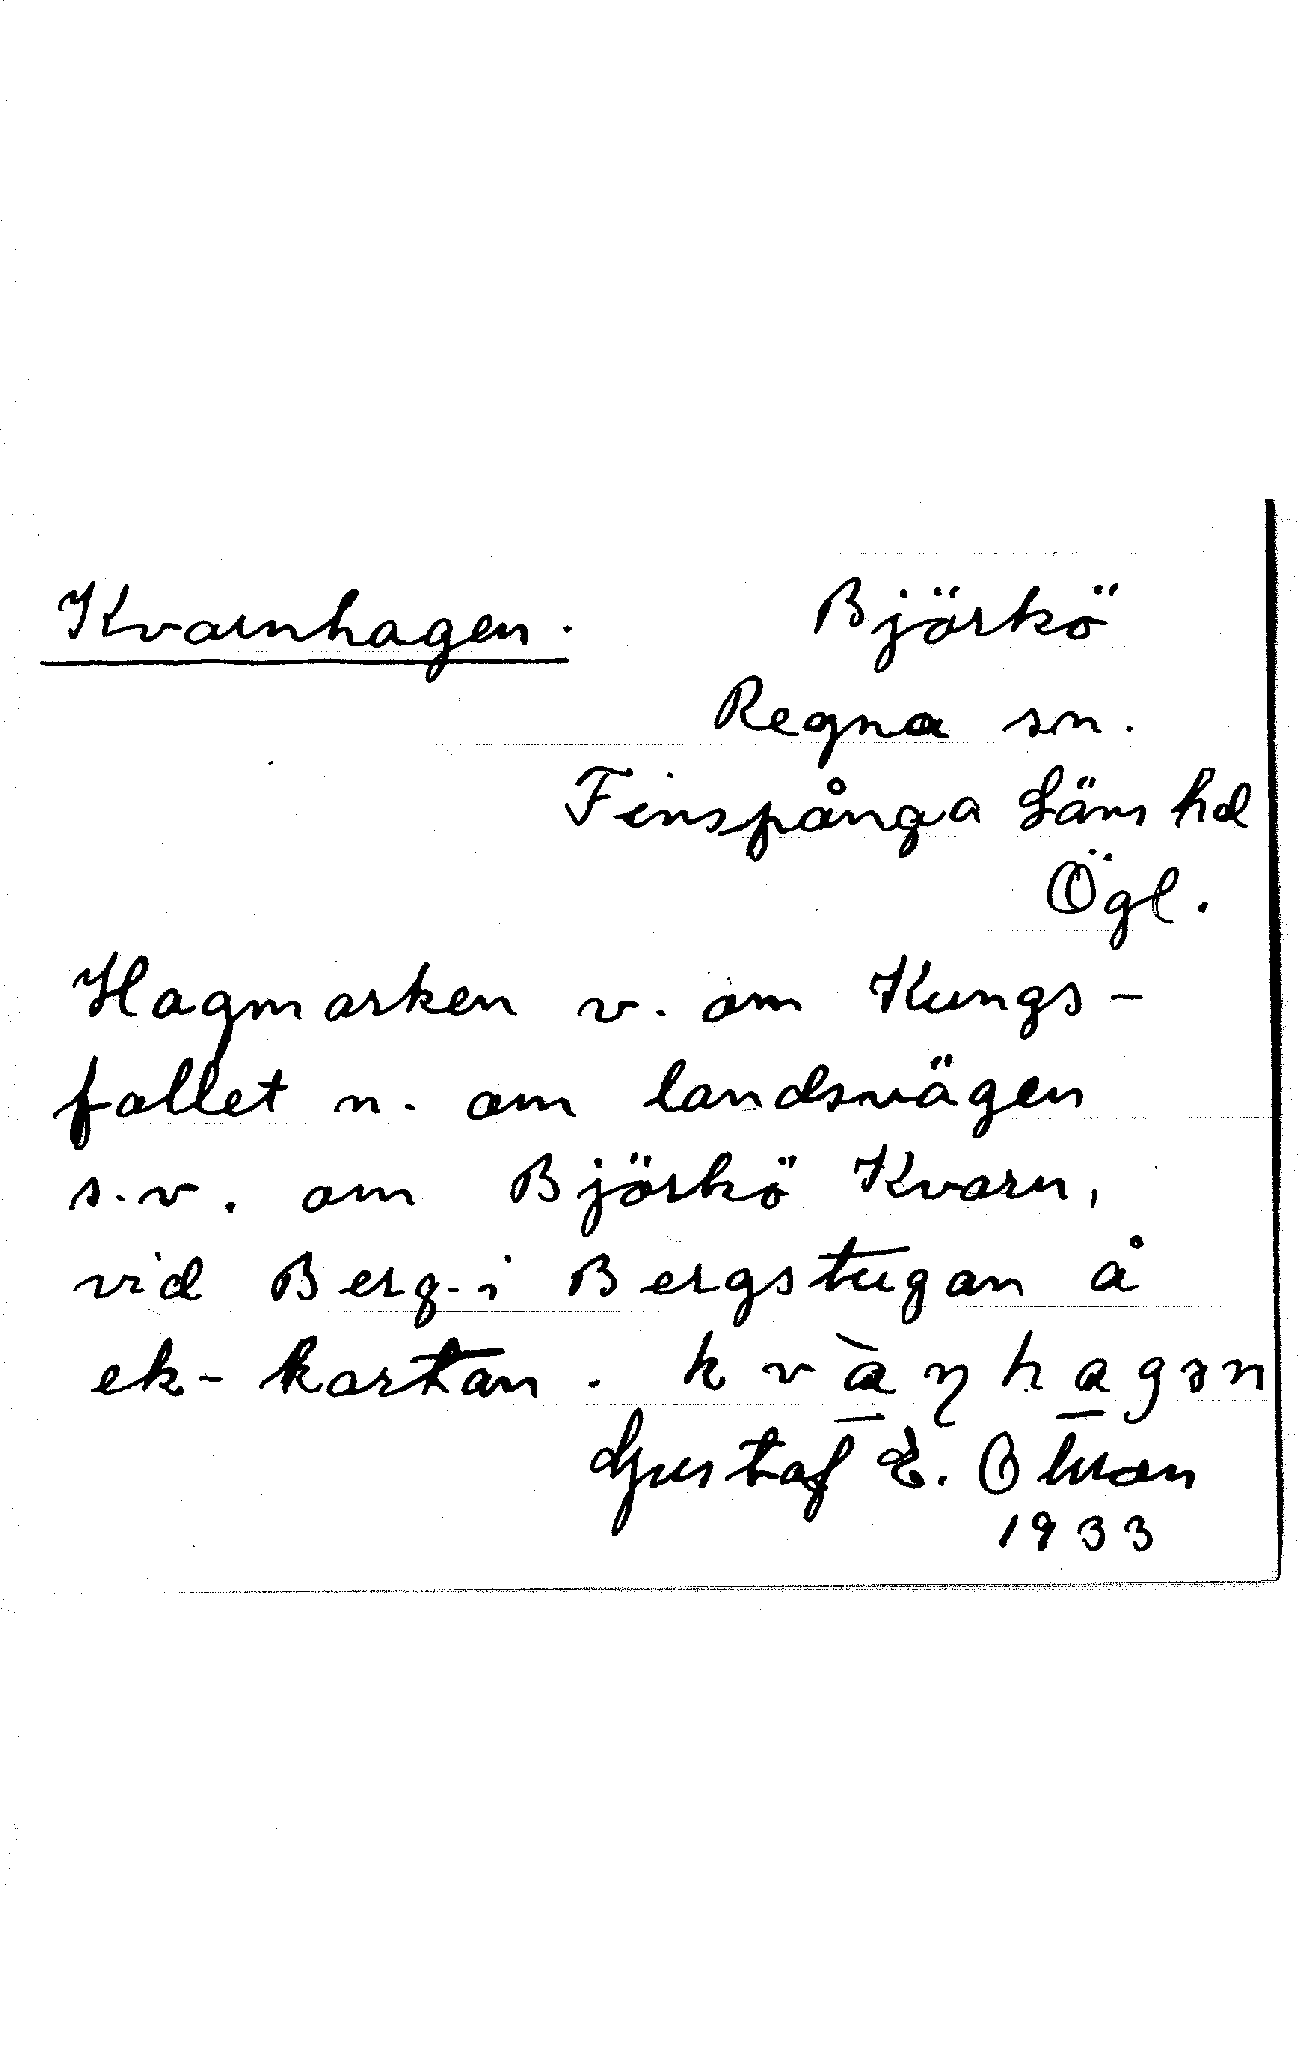 Kvarnhagen. Björkö
Regna sn.
Finspånga Läns hd
Ögl.
Hagmarken v. om Kungs-
fallet n. om landsvägen
s.v. om Björkö Kvarn,
vid Berg- i Bergstugan å
ek-kartan. kvàṇhagən
Gustaf E. Olson
1933